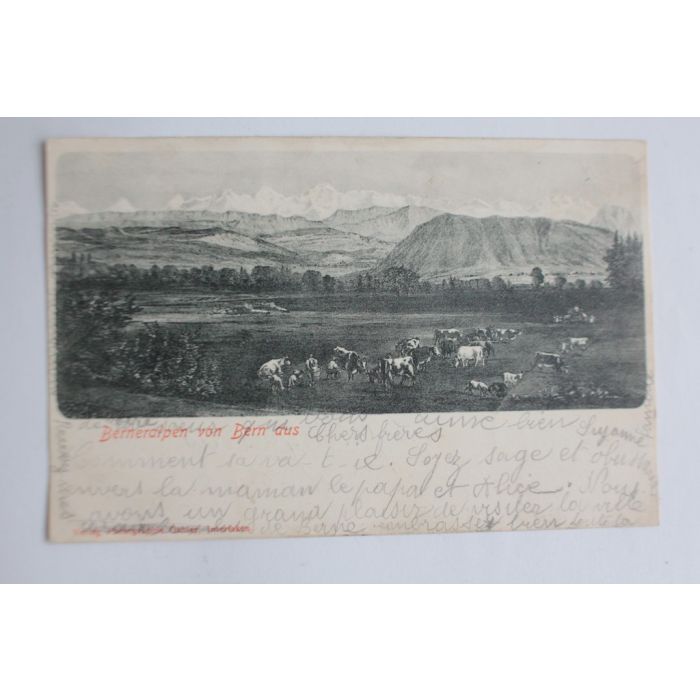 Berneralpen von Bern aus
Chers frères
Comment sa va-t-il. Soyez sage et
envers la maman le papa et Alice. Nous
avons un grand plaisir de visiter la ville
de Berne embrassez bien toute la
vous aime bien Suzanne